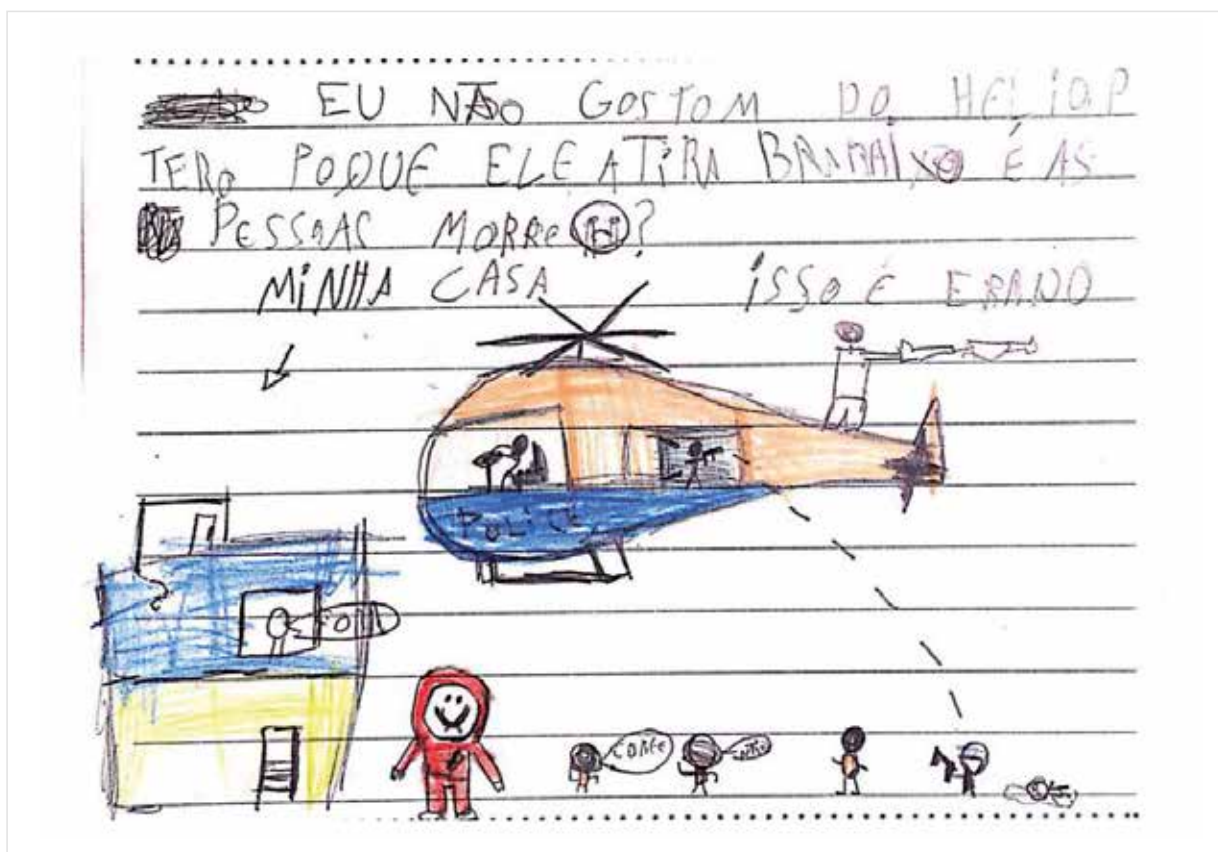 EU NÃO GOSTOM DO HELIOP
TERO POQUE ELE ATIRA BRAMAIXO É AS
PESSOAS MORRE ?
MINHA CASA ISSO É ERADO
POLICE
CORRE